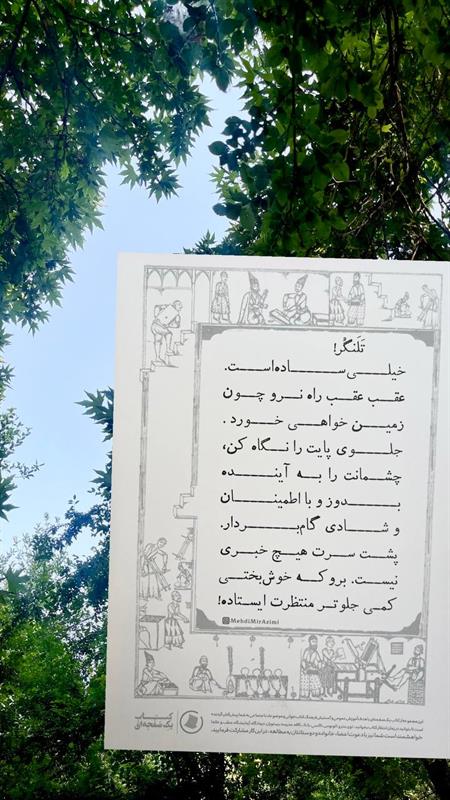 تَلَنگُر!
خیلی ساده‌است.
عقب عقب راه نرو چون
زمین خواهی خورد .
جلوی پایت را نگاه کن،
چشمانت را به آینده
بدوز و با اطمینان
و شادی گام‌بردار.
پشت سرت هیچ خبری
نیست. برو که خوش‌بختی
کمی جلوتر منتظرت ایستاده!
MehdiMirAzimi
کتاب
یک صفحه‌ای